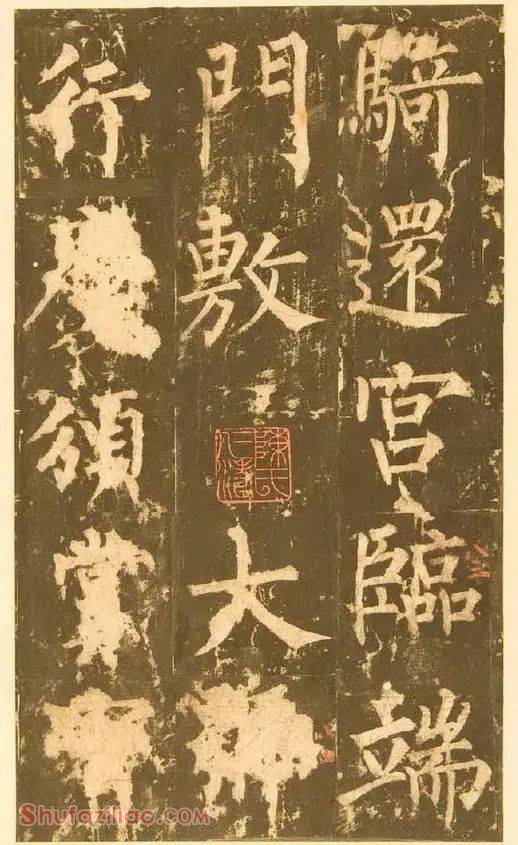 騎還宮臨端
門敷大
行頒賞
陳氏仁濤
Shufaziliao.com